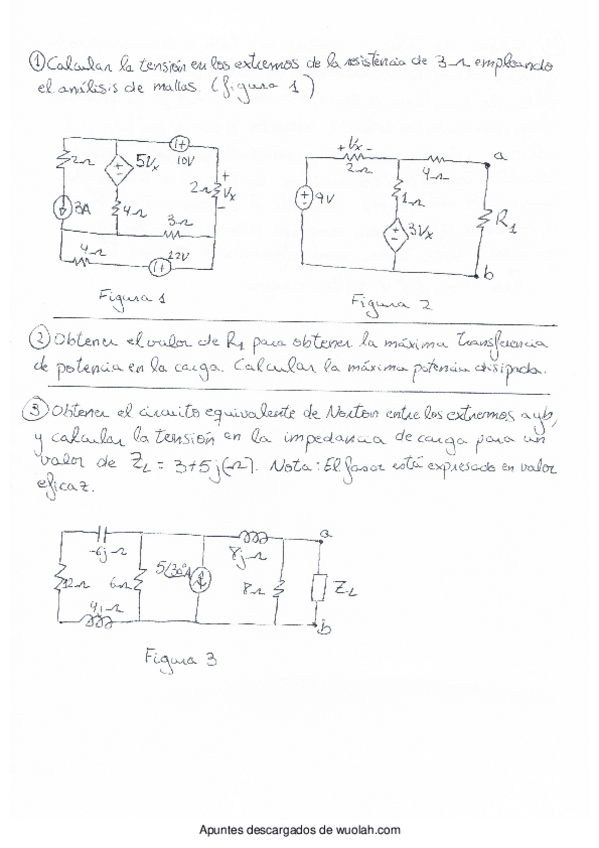 ① Calcular la tensión en los extremos de la resistencia de 3Ω empleando
el análisis de mallas. (figura 1)
2Ω
5Vx
10V
2Ω
+
Vx
-
3A
4Ω
3Ω
4Ω
12V
Figura 1
+Vx-
2Ω
4Ω
a
9V
1Ω
3Vx
R1
b
Figura 2
② Obtener el valor de R1 para obtener la máxima transferencia
de potencia en la carga. Calcular la máxima potencia disipada.
③ Obtener el circuito equivalente de Norton entre los extremos a y b,
y calcular la tensión en la impedancia de carga para un
valor de ZL = 3+5j[Ω]. Nota: El fasor está expresado en valor
eficaz.
-6jΩ
12Ω
6Ω
4jΩ
5/30°A
8jΩ
8Ω
a
ZL
b
Figura 3
Apuntes descargados de wuolah.com